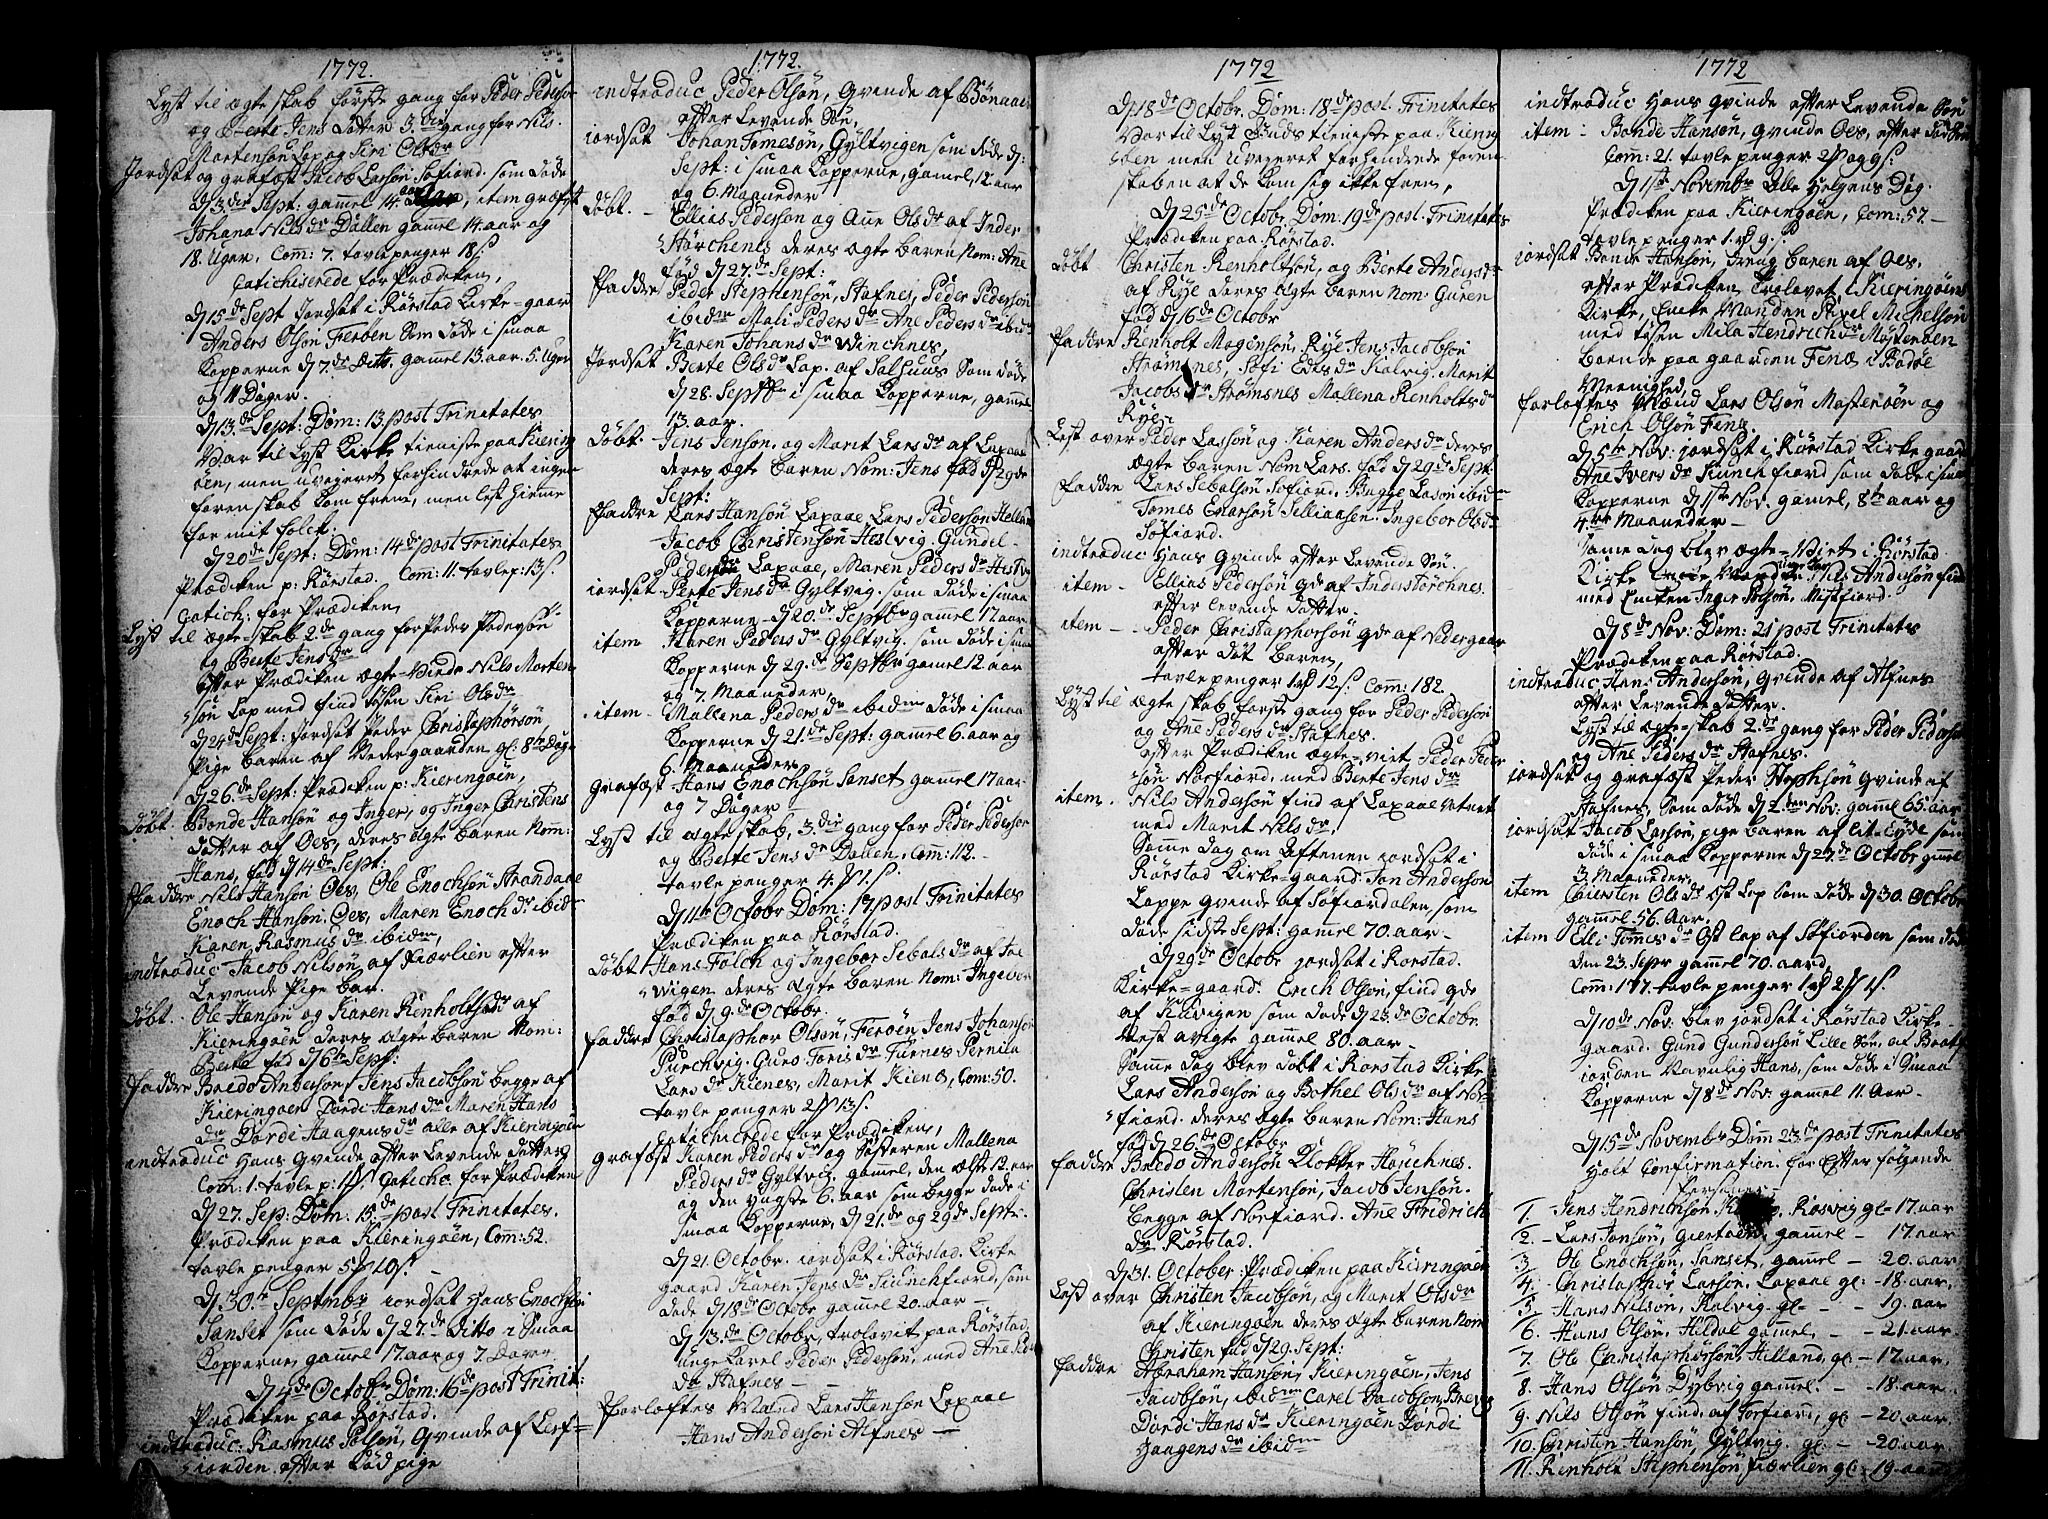 1772.
Lyst til ægte skab første gang for Peder Pederson
og Berte Jens Datter 3.die gang for Nils
Mortensøn Lap og Siri Olsdr
Jordsat og grafæst Jacob Larsøn Søfiord. som døde
d 3.die Sept: gamel 14. aar, item græfst
Johana Nilsdr Dallen gamel 14 aar og
18. Uger. Com: 7. tavle penger 18 s
Catichiserede for Prædiken,
d 15de Sept Jordsat i Rørstad Kirke=gaar
Anders Olsøn Ferøen som døde i smaa
Kopperne d 7.de Ditto. gamel 13. aar. 5. Uger
og 11 Dager.
d 13.de Sept: Dom: 13. post Trinitates
Var til Lyst Kirke tieniste paa Kiering
øen, men uvegeret forhindrede at ingen
forenskab kom frem, men lest hieme
for mit folck:
d 20de Sept: Dom: 14de post Trinitates
Prædiken p: Rørstad. Com: 11. tavlep: 13 s
Catich: for Prædiken,
Lyst til ægte=skab 2.de gang for Peder Pedersøn
og Berte Jensdr
Efter Prædiken ægte=viede Nils Morten
søn Lap med find tøsen Siri Olsdr
d 24de Sept: Jordsat Peder Christophørsøn,
Pige baren af Nedergaarden, gl: 8te Dage
d 26.de Sept: Prædiken p: Kieringøen,
Døbt. Bonde Hansøn og Inger, og Inger Christens
datter af Oes, deres ægte baren Nom:
Hans, fød d 14de Sept:
Faddre Nils Hansøn Oes, Ole Enochsøn Strandaae
Enoch Hansøn. Oes, Maren Enochdr ibid
Karen Rasmusdr ibidm,
indtraduc Jacob Nilsøn af Fiærlien efter
Levende Pige bar.
døbt. Ole Hansøn og Karen Renholtsdr af
Kieringøen deres ægte baren Nom:
Berte fød d 6te Sept:
faddre Bredo Andersøn, Jens Jacobsøn begge af
Kieringøen Dordi Hansdr Maren Hans
dr Dordi Haagensdr alle af Kieringøen
indtraduc Hans Qvinde efter Levende datter
Com: 1. tavle p: 1 s Catiche. for Prædiken
d 27. Sep: Dom: 15de post Trinitates.
Prædiken paa Kieringøen, Com: 52.
tavle penger 5 10 s.
d 30te Septmbr iordsat Hans Enochsøn
Sanset som døde d 27.de Ditto i Smaa
Kopperne, gammel 17. aar og 7. Dager
d 4de Octobr Dom: 16de post Trinit:
Prædiken paa Rørstad.
indtraduc: Rasmus Polsøn, Qvinde af Leif=
iorden. efter død pige
1772.
indtraduc Peder Olsøn, Qvinde af Bonaae
efter Levende Søn,
iordsat Johan Tomesøn, Gyltvigen som døde d:
Sept: i smaa Kopperne, gamel 12 aar
og 6. Maaneder
Døbt. Ellias Pedersøn og Ane Olsdr af Inder
Størchenes deres ægte baren Nom: Ane
fød d 27.de Sept:
Faddre Peder Stephensøn, Stafnes, Peder Pedersøn
ibidm Mali Pedersdr Ane Pedersdr ibid
Karen Johansdr Winchnes,
Jordsat Berte Olsdr Lap. af Salhuus som døde
d 28. Septbr i smaa Kopperne, gammel
13. aar.
døbt. Jens Jensøn. og Marit Larsdr af Laxaae
deres ægte baren Nom: Jens fød d 29de
Sept:
Faddre Lars Hansøn Laxaae Lars Pedersøn Helland
Jacob Christensøn Hestvig. Gundel
Pedersdr Laxaae, Maren Pedersdr Hestv
iordsat Berte Jensdr Gyltvig. som døde i smaa
Kopperne d 20.de Septbr gammel 17 aar
item Karen Pedersdr Gyltvig. som døde i smaa
Kopperne d 29.de Septbr gamel 12. aar
og 7. Maaneder,
item. Mallena Pedersdr ibidm døde i smaa
Kopperne d 21.de Sept: gammel 6. aar og
6. Maaneder
Grafæst Hans Enochsøn Sanset gammel 17 aar
og 7 Dager
Lyst til ægte skab, 3.die gang for Peder Pedersøn
og Berte Jensdr Dallen. Com: 112.
tavle penger 4. 1 s.
d 11te Octobr Dom: 17 post Trinitates
Prædiken paa Rørstad.
Døbt Hans Falch og Ingebor Sebalsdr af Toe
vigen. deres ægte baren Nom: Ingebor
fød d 9.de Octobr.
faddre Christopher Olsøn, Ferøen, Jens Johansøn
Purchvig. Gurs Torisdr Furnes Pernila
Larsdr Kienes, Marit Kienes, Com: 50.
tavle penger 2 13 s.
Catichicrede for Prædiken,
Grafæst Karen Pedersdr og Søsteren Mallena
Pedersdr Gyltvig. gammel, den ælste 12. aar
og den yngste 6. aar som begge døde i
smaa Kopperne, d 21.de og 29de Sept:
d 21. Octobr. iordsat i Rørstad. Kirke
gaard Karen Jensdr Siunchfiord, som
døde d 18de Octobr gammel 20. aar
d 13.de Octobr, trolovit paa Rørstad.
unge karel Peder Pedersøn, med Ane Peders
dr Stafnes
Forloftes Mænd Lars Hansøn Laxaae
Hans Andersøn Alfnes
1772
d 18de Octobr. Dom: 18de post Trinitates
Var til Lyst Guds tieneste paa Kiering
øen men Uvegeret forhindrede foren
skaben at de kom sig ikke frem,
d 25de Octobr Dom: 19de post. Trinitates
Prædiken paa Rørstad.
døbt Christen Renholtsøn, og Berte Andersdr
af Rye deres ægte baren Nom: Guren
fød d 16de Octobr
faddre Renholt Mogensøn, Rye Jens Jacobsøn
Strømsnes, Søfi Edisdr Kalvig. Marit
Jacobsdr Strømsnes Mallena Renholtsdr
Rye.
Lest over Peder Lassøn og Karen Andersdr deres
ægte baren Nom Lars. fød d 29de Sept:
faddre Lars Sebalsøn Søfiord. Bugge Lasøn ibidm
Tomes Enersøn Selliaasen. Ingebor Olsdr
Søfiord.
indtraduc Hans Qvinde efter Levende Søn.
item Ellias Pedersøn qde af Inderstørchnes.
efter levende datter.
item Peder Christophersøn qde af Nedergaar
efter døt baren,
tavle penger 1 12 s. Com: 182
Lyst til ægte skab første gang for Peder Pedersøn
og Ane Pedersdr Stafnes.
efter Prædiken ægte=viet, Peder Peder
søn Norfiord, med Berte Jensdr
item. Nils Andersøn find af Laxaae vatnet
med Marit Nilsdr.
Same Dag om Aftenen iordsat i
Rørstad Kirke=gaard. Jon Andersøn
Lappe qvende af Søfiordalen, som
døde sidste Sept: gammel 70. aar
d 29de Octobr jordsat i Rorstad.
Kirke=gaard. Erich Olsøn, find qde
af Kuvigen som døde d 23.de Octobr.
Nest avigte gammel 80. aar
Samme Dag blev døbt i Rorstad Kirke
Lars Andersøn og Bothel Olsdr af Nor
fiord. deres ægte baren Nom: Hans
fød d 26.de Octobr
faddre Bredo Andersøn Klokker Hørchnes.
Christen Mortensøn, Jacob Jensøn.
begge af Norfiord. Ane Fridrich
dr Rørstad.
d 31. October: Prædiken paa Kieringøen
Lest over Christen Jacobsøn, og Marit Olsdr
af Kieringøen deres ægte baren Nom
Christen fød d 29. Sept:
faddre Abraham Hansøn, Kieringøen, Jens
Jacobsøn, ibidm Carel Jacobsøn Brevig
Dordi Hansdr Kieringøen Dordi
Haagensdr ibidm
1772
indtraduc Hans qvinde efter Levende Søn
item Bonde Hansøn, qvinde Oes, efter død Søn
Com: 21. tavle penger 2 og 9 s.
d 1ste Novembr Alle Helgens Dag.
Prædiken paa Kieringøen, Com: 57.
tavle penger 1. 9. s
iordsat Bonde Hansøn, dreng baren af Oes.
efter Prædiken trolovet i Kieringøens
Kirke, Enke Manden Povel Michelsøn
med tøsen Mila Hendrichdr Mastenøen
baende paa gaarden Fenæ i Bodøe
Meenighed,
Forloftes Mænd Lars Olsøn Mastenøen og
Erich Olsøn Fenæ.
d 5te Nov: jordsat i Rørstad Kirke gaard
Ane Iversdr Siunchfiord som døde i smaa
Kopperne d 1ste Nov. gamel, 8te aar og
4.re Maaneder
Same dag blev ægte=Viet i Rørstad
Kirke Nils Andersøn find
med Enken Inger Polsøn, Mistfiord.
d 8de Nov: Dom: 21 post Trinitates
Prædiken paa Rørstad.
indtraduc Hans Andersøn, Qvinde af Alfnes
efter Levende datter.
Lyst til ægte=skab 2.de gang for Peder Pedersøn
og Ane Pedersdr Stafnes.
iordsat og grafæst Peder Stephsøn Qvinde af
Stafnes, som døde d 2.den Nov: gamel 65. aar
jordsat Jacob Larsøn, pige baren af lit=Eyde som
døde i smaa Kopperne d 27.de Octobr gamel
3. Maaneder,
item Ciersten Olsdr Øst Lap som døde d 30. Octobr
gammel 56. Aar.
item Elli Tomesdr Øst lap af Søfiorden som døde
den 23. Sepr gammel 70. aar
Com: 177. tavle penger 1 2 1 s.
d 10de Nov. blev jordsat i Rørstad Kirke
gaard. Gund Gundersøn Lille Søn, af Bratf
iorden Navnlig Hans, som døde i Smaa
Kopperne d 8de Nov: gammel 11. Aar
d 15de Novembr Dom 23de post Trinitates
Holt Confirmation. for efter følgende
Persohner
1. Jens Hendrichsøn Rosvig gl 17. aar
2. Lars Jonsøn, Giertøen, gammel 17. aar
3. Ole Enochsøn, Sanset, gammel 20. aar
4. Christopher Larsøn, Laxaae gl: 18. aar,
5. Hans Nilsøn, Kalvig. gl. 19. aar
6. Hans Olsøn. Hildal gammel. 21. aar
7. Ole Christophersøn, Hilland, gl: 17. aar,
8. Hans Olsøn Dybvig gammel. 18. aar.
9. Nils Olsøn find. af Torfiord, gl 20. aar.
10. Christen Hansøn, Gyltvig. gl: 20. aar.
11. Renholt Stephensøn, Fiærlien gl: 19. aar